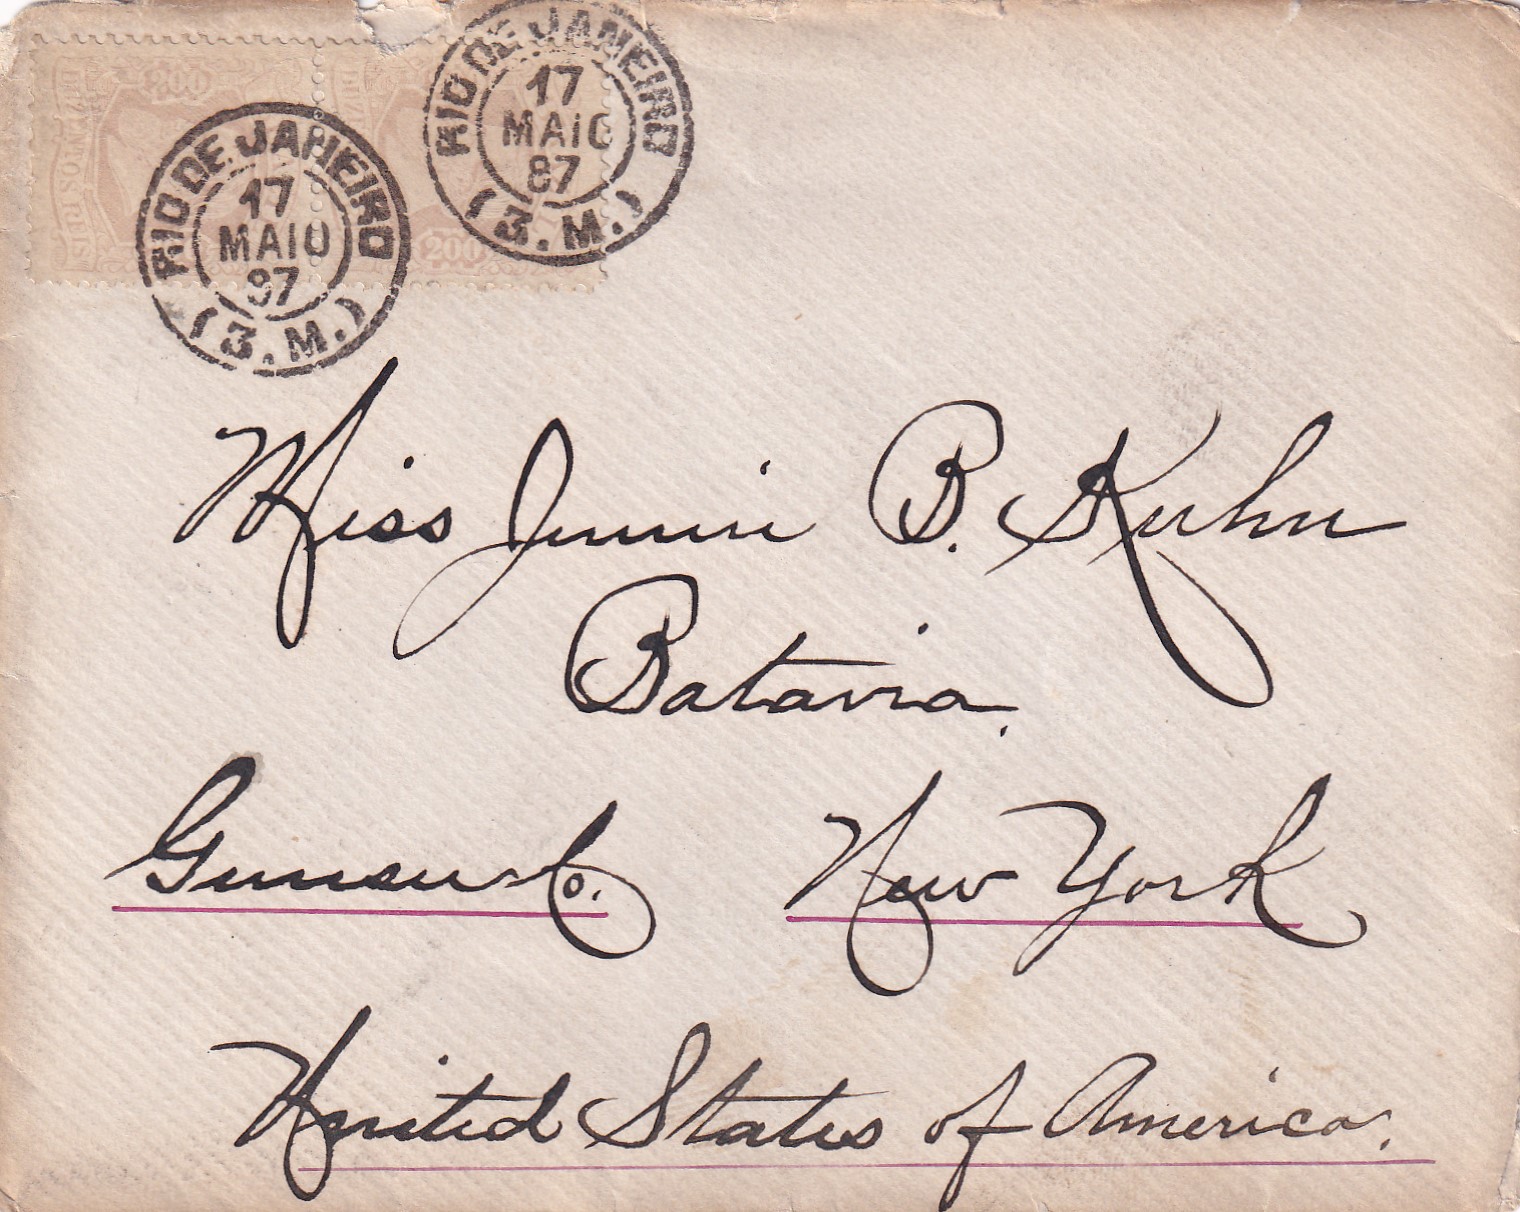 200
RIO DE JANEIRO
17
MAIO
87
(3.M.)
RIO DE JANEIRO
17
MAIO
87
(3.M.)
200
Miss Jennie B. Kuhn
Batavia.
Genesee Co. New York
United States of America.